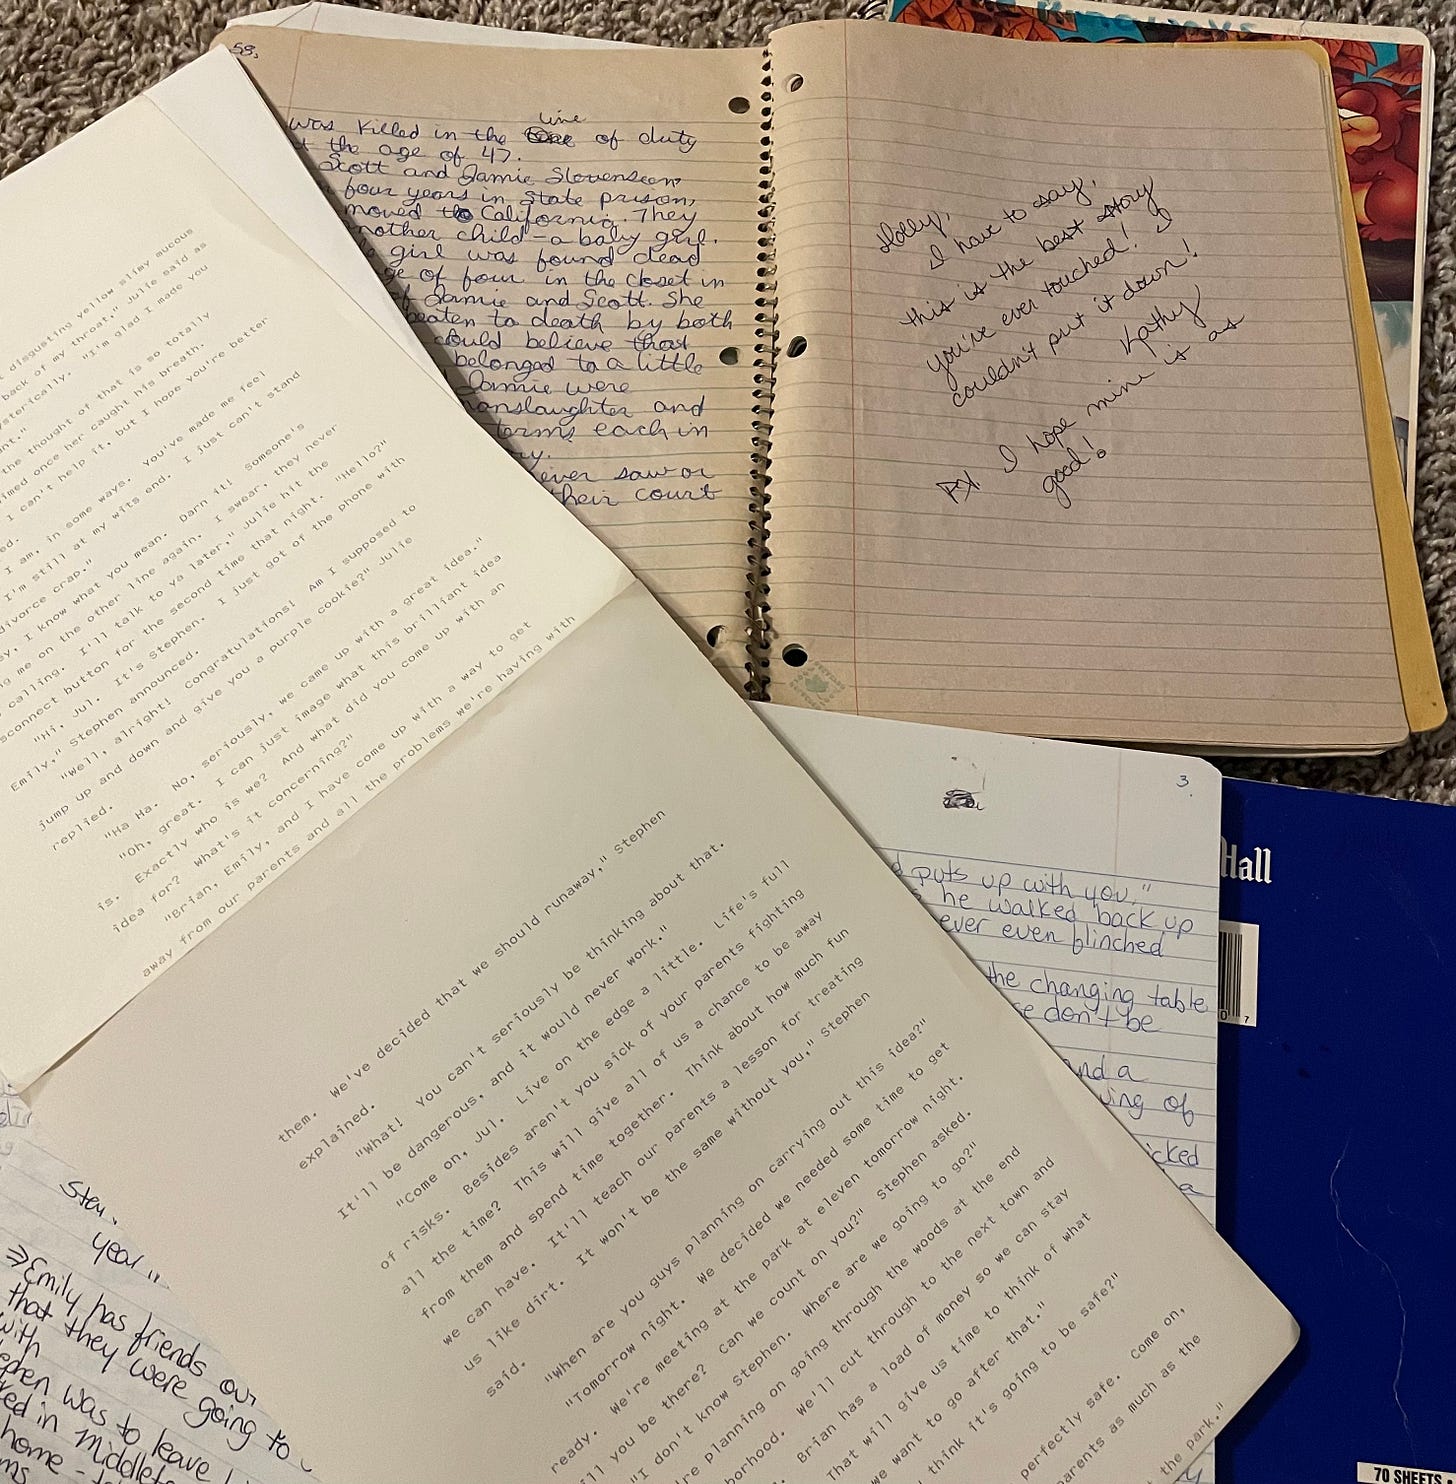 58.
was killed in the line of duty
the age of 47.
Scott and Jamie Slovensen
four years in state prison,
moved to California. They
another child - a baby girl.
girl was found dead
of four in the closet in
of Jamie and Scott. She
beaten to death by both
could believe that
belonged to a little
Jamie were
manslaughter and
terms each in
ever saw or
their court
Holly,
I have to say,
this is the best story
you've ever touched! I
couldn't put it down!
Kathy
P.S. I hope mine is as
good!
disgusting yellow slimy mucous
back of my throat," Julie said as
"I'm glad I made you
the thought of that is so totally
once her caught his breath.
I can't help it, but I hope you're better
I am, in some ways. You've made me feel
I'm still at my wits end. I just can't stand
divorce crap."
I know what you mean. Darn it! Someone's
me on the other line again. I swear, they never
calling. I'll talk to ya later," Julie hit the
button for the second time that night. "Hello?"
"Hi, Jul. It's Stephen. I just got of the phone with
Emily," Stephen announced.
"Well, alright! Congratulations! Am I supposed to
jump up and down and give you a purple cookie?" Julie
replied.
"Ha Ha. No, seriously, we came up with a great idea."
"Oh, great. I can just image what this brilliant idea
is. Exactly who is we? And what did you come up with an
idea for? What's it concerning?"
"Brian, Emily, and I have come up with a way to get
away from our parents and all the problems we're having with
them. We've decided that we should runaway," Stephen
explained.
"What! You can't seriously be thinking about that.
It'll be dangerous, and it would never work."
"Come on, Jul. Live on the edge a little. Life's full
of risks. Besides aren't you sick of your parents fighting
all the time? This will give all of us a chance to be away
from them and spend time together. Think about how much fun
we can have. It'll teach our parents a lesson for treating
us like dirt. It won't be the same without you," Stephen
said.
"When are you guys planning on carrying out this idea?"
"Tomorrow night. We decided we needed some time to get
ready. We're meeting at the park at eleven tomorrow night.
you be there? Can we count on you?" Stephen asked.
"I don't know Stephen. Where are we going to go?"
planning on going through the woods at the end
We'll cut through to the next town and
Brian has a load of money so we can stay
That will give us time to think of what
we want to go after that."
think it's going to be safe?"
perfectly safe. Come on,
parents as much as the
the park."
3.
puts up with you,"
he walked back up
ever even flinched
the changing table
don't be
and a
of
a
Hall
70 SHEETS
year
⇒Emily has friends our
that they were going to
with
was to leave
in
home